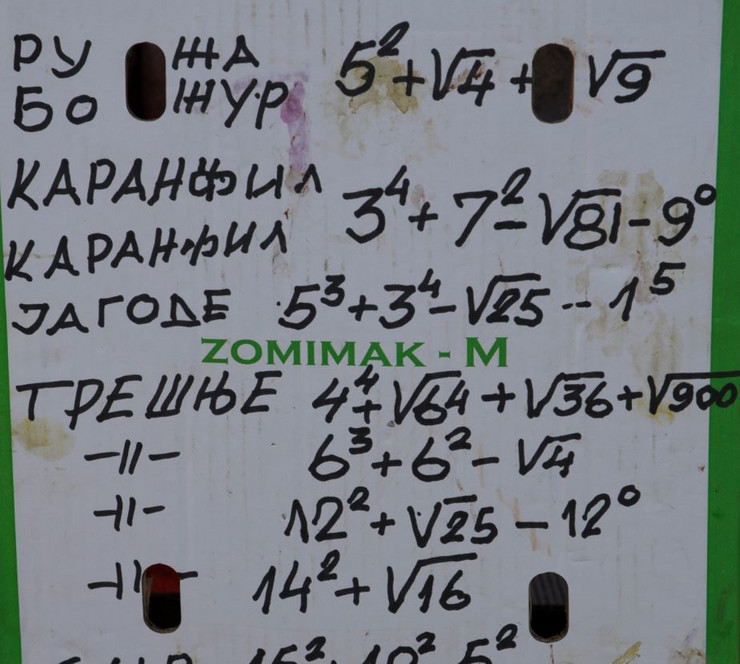 РУЖА 5² + √4 + √9
БОЖУР
КАРАНФИЛ 3⁴ + 7² - √81 - 9⁰
КАРАНФИЛ
ЈАГОДЕ 5³ + 3⁴ - √25 - 1⁵
ZOMIMAK - M
ТРЕШЊЕ 4⁴ + √64 + √36 + √900
-||- 6³ + 6² - √4
-||- 12² + √25 - 12⁰
-||- 14² + √16